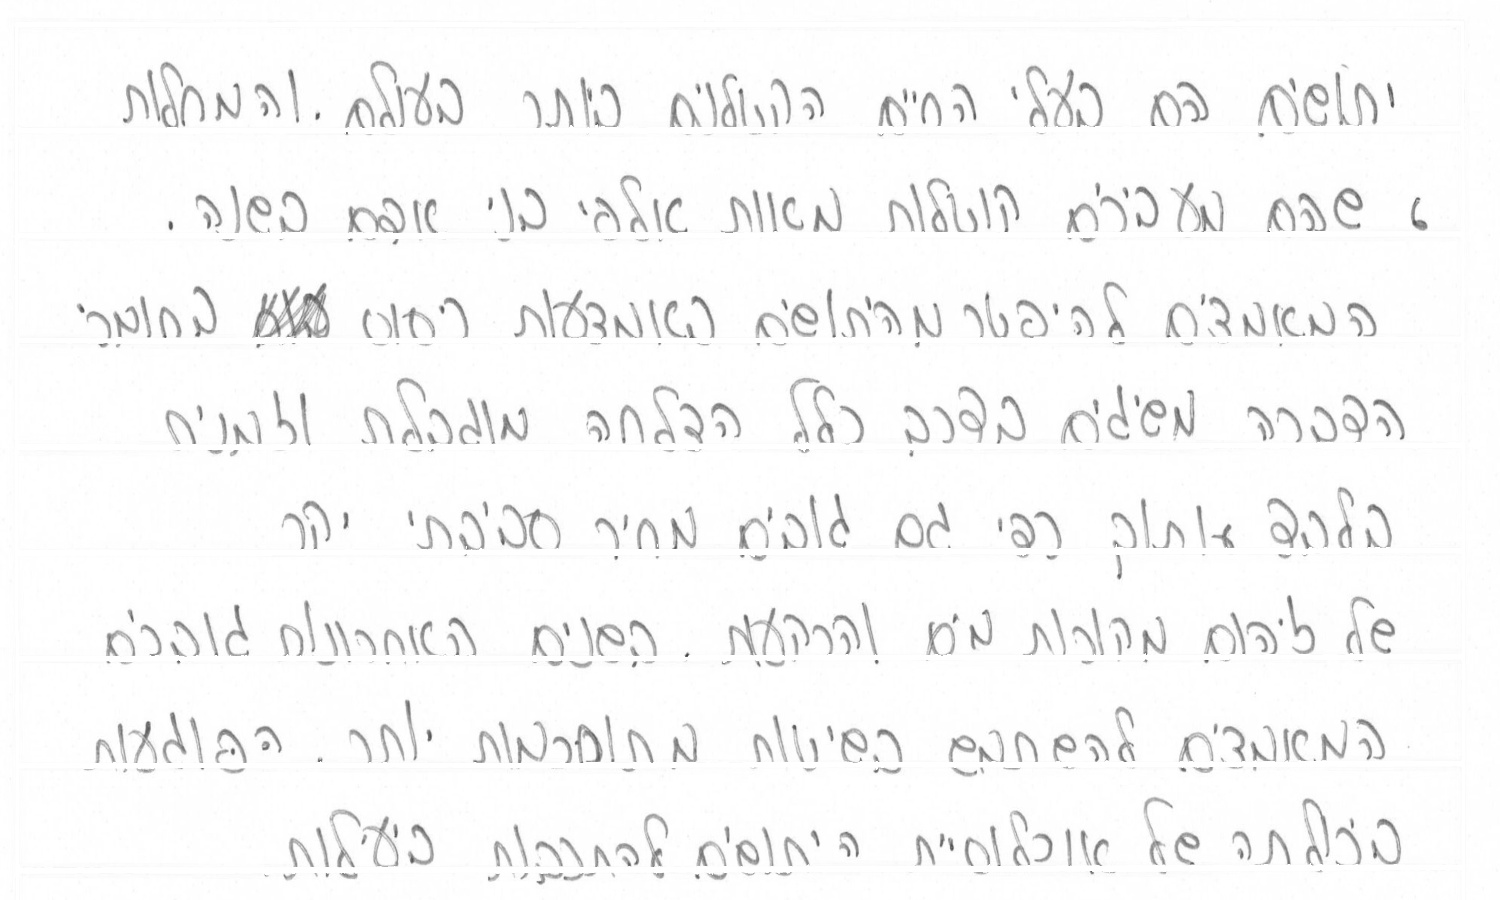 יתושים הם בעלי החיים הקטלנים ביותר בעולם. והמחלות
שהם מעבירים קוטלות מאות אלפי בני אדם בשנה.
המאמצים להיפטר מהיתושים באמצעות ריסוס בחומרי
הדברה משיגים בדרך כלל הצלחה מוגבלת וזמנית
בלבד אותוך כדי גם גובים מחיר סביבתי יקר
של זיהום מקורות מים והקרקעת. בשנים האחרונות גוברים
המאמצים להשתמש בשיטות מתוחכמות יותר. הפוגעות
ביכולתה של אוכלוסיית היתושים להתרבות ביעילות